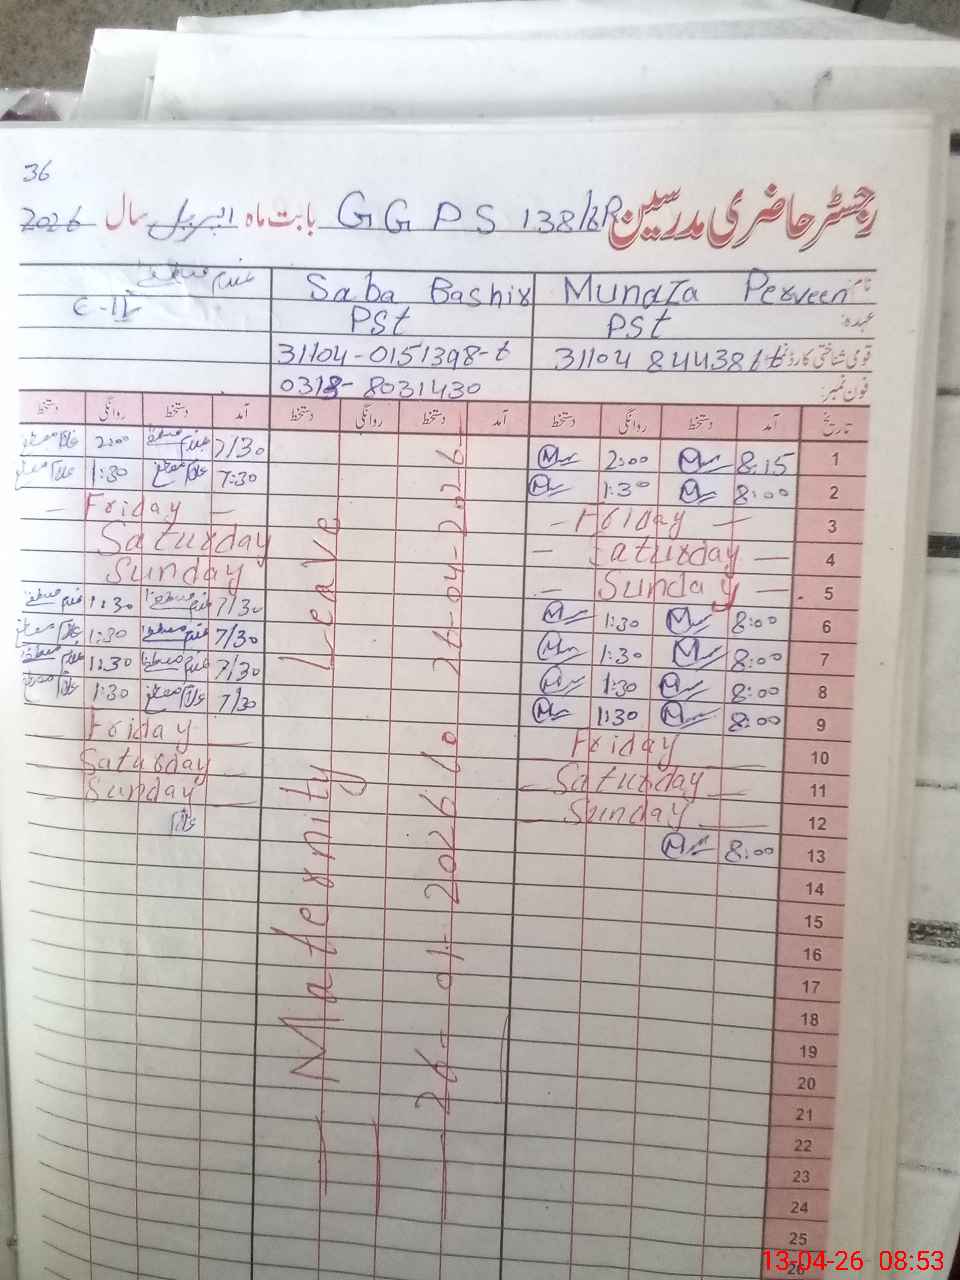 36
رجسٹر حاضری مدرسین GGPS 138/6R بابت ماہ اپریل سال 2026
نام: Munaza Perveen
Saba Bashir
غلام مصطفیٰ
عہدہ: PSt
PSt
C-IV
قومی شناختی کارڈ نمبر 31104
31104-0151398-6
فون نمبر:
0318-8031430
تاریخ آمد دستخط روانگی دستخط آمد دستخط روانگی دستخط آمد دستخط روانگی دستخط
1 8:15 2:00 7/30 غلام مصطفیٰ 2:00 غلام مصطفیٰ
2 8:00 1:30 7:30 غلام مصطفیٰ 1:30 غلام مصطفیٰ
3 - Friday - - Friday -
4 - Saturday - Saturday
5 - Sunday - Sunday
6 8:00 1:30 7/30 غلام مصطفیٰ 1:30 غلام مصطفیٰ
7 8:00 1:30 7/30 غلام مصطفیٰ 1:30 غلام مصطفیٰ
8 8:00 1:30 7/30 غلام مصطفیٰ 1:30 غلام مصطفیٰ
9 8:00 1:30 7/30 غلام مصطفیٰ 1:30 غلام مصطفیٰ
10 - Friday - - Friday -
11 - Saturday - Saturday -
12 - Sunday - - Sunday -
13 8:00 غلام
14
15
16
17
18
19
20
21
22
23
24
25
26
Maternity Leave
26-01-2026 to 26-04-2026
13-04-26 08:53